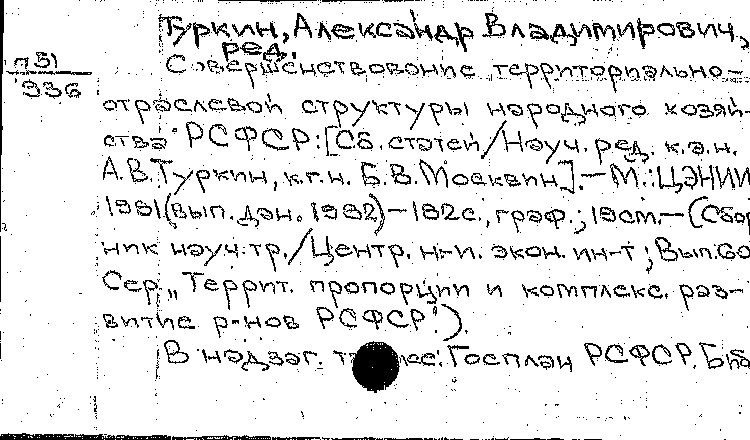 Туркин, Александр Владимирович,
ред.
п 81
336
Совершенствование территориально-
отраслевой структуры народного хозяй-
ства РСФСР: [Сб. статей / Науч. ред. к.э.н.
А.В. Туркин, к.г.н. Б.В. Москвин]. — М.: ЦЭНИИ
1981 (вып. дан. 1982) — 182 с., граф.; 19 см. — (Сбор
ник науч. тр. / Центр. н.-и. экон. ин-т; Вып. 60
Сер. „Террит. пропорции и комплекс. раз-
витие р-нов РСФСР").
В надзаг. Госплан РСФСР.